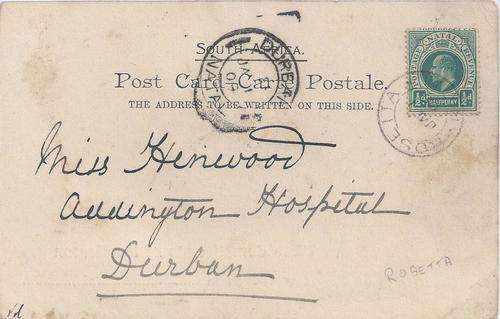 SOUTH AFRICA.
Post Card - Carte Postale.
THE ADDRESS TO BE WRITTEN ON THIS SIDE.
DURBAN
NATAL
POSTAGE NATAL REVENUE
½d HALFPENNY ½d
ROSETTA
Miss Henwood
Addington Hospital
Durban
ROSETTA